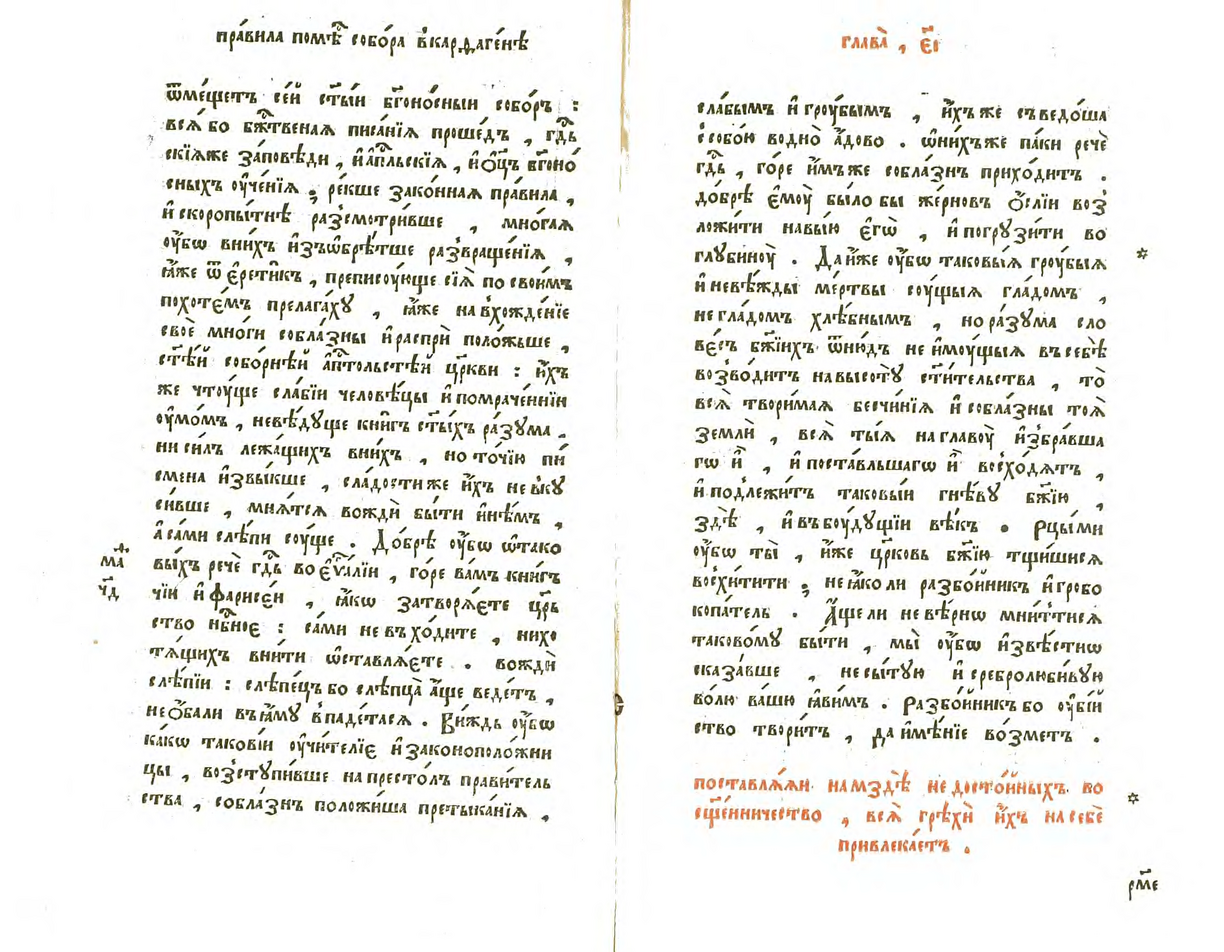 пра́вила помѣ́ст собо́ра в̾карѳаге́нѣ
ѿме́щетъ се́й ст҃ы́и бг҃оно́сныи собо́ръ :
всѧ́ бо бж҃твеная писа́нїѧ проше́дъ , гдⷭ҇ь
скїѧже за́повѣди , и҆ а҆пⷭ҇льскїѧ , и҆ ѻ҆ц҃ъ бг҃оно́
сныхъ оу҆че́нїѧ ; ре́кше зако́нная пра́вила ,
и҆ скоропы́тнѣ раз̾смотри́вше , мно́гая
оу҆́бѡ вни́хъ и҆з̾ѡбрѣ́тше раз̾враще́нїѧ ,
ꙗ҆́же ѿ є҆рети́къ , преписоу́юще сїѧ̀ по свои́мъ
похоте́мъ прелага́хꙋ , ꙗ҆́же на в̾хожде́нїе
своѐ мно́ги собла́зны и҆ ра́спри поло́жьше ,
ст҃ѣ́й собо́рнѣй а҆пⷭ҇тольстѣй цр҃кви : и҆́хъ
же чтоу́ще сла́бїи человѣ́цы и҆ помраче́ннїи
оу҆мо́мъ , невѣ́дꙋще кни́гъ ст҃ы́хъ ра́зꙋма ,
ни си́лъ лежа́щихъ вни́хъ , но то́чїю пи́
смена и҆звы́кше , сла́дости же и҆́хъ не в̾кꙋ
си́вше , мнѧ́тсѧ вождѝ бы́ти и҆нѣ́мъ ,
а҆ са́ми слѣ́пи соу́ще . До́брѣ оу҆́бѡ ѡ҆ тако
вы́хъ речѐ гдⷭ҇ь во є҆ѵⷢ҇а́лїи , го́ре ва́мъ кни́г
чїи и҆ фарисе́и , ꙗ҆́кѡ затворѧ́ете црⷭ҇ь
ство нбⷭ҇ное : са́ми не въ хо́дите , ни хо
тѧ́щихъ вни́ти ѡ҆ставлѧ́ете . вождѝ
слѣ́пїи : слѣпе́цъ бо слѣпца̀ а҆́ще веде́тъ ,
не ѻ҆́бали въ ꙗ҆́мꙋ в̾паде́тасѧ . Ви́ждь оу҆́бѡ
ка́кѡ такові́и оу҆чи́телїе и҆ законополо́жни
цы , воз̾стꙋпи́вше на престо́лъ прави́тель
ства , собла́знъ положи́ша претыка́нїѧ ,
маⷴ҇
ч҃д
глава̀ , є҃і
сла́бымъ и҆ гроу́бымъ , и҆́хъ же съведо́ша
с̾собо́ю водно̀ а҆́дово . ѡ҆ни́хъ же па́ки речѐ
гдⷭ҇ь , го́ре и҆́мъ же собла́знъ прихо́дитъ .
до́брѣ є҆моу̀ бы́ло бы же́рновъ ѻ҆́слїи воз̾
ложи́ти на вы́ю є҆гѡ̀ , и҆ погрꙋзи́ти во
глꙋбиноу̀ . Да и҆́же оу҆́бѡ таковы́ѧ гроу́быѧ
и҆ невѣ́жды ме́ртвы соу́щыѧ гла́домъ ,
не гла́домъ хлѣ́бнымъ , но ра́зꙋма сло
ве́съ бж҃їихъ ѿню́дъ не и҆моу́щыѧ въ себѣ̀
возво́дитъ на высотꙋ̀ ст҃и́тельства , то̀
всѧ̀ твори́мая бесчи́нїѧ и҆ собла́зны тоѧ̀
землѝ , всѧ̀ ты́ѧ на главоу̀ и҆збра́вша
гѡ и҆̀ , и҆ поста́вльшагѡ и҆̀ восхо́дѧтъ ,
и҆ подлежи́тъ таковы́и гнѣ́вꙋ бж҃їю ,
здѣ̀ , и҆ въ боу́дꙋщїи вѣ́къ . Рцы́ ми
оу҆́бѡ ты̀ , и҆́же цр҃ковь бж҃їю тщи́шисѧ
восхи́тити ; не ꙗ҆́ко ли разбо́йникъ и҆ гробо
копа́тель . А҆́ще ли не вѣ́рнѡ мни́ттисѧ
тако́вомꙋ бы́ти , мы̀ оу҆́бѡ и҆звѣ́стнѡ
сказа́вше , несы́тꙋю и҆ сребролюби́вꙋю
во́лю ва́шю ꙗ҆ви́мъ . Разбо́йникъ бо оу҆бі́й
ство твори́тъ , да и҆мѣ́нїе во́зметъ .
поставлѧ́ѧи на мздѣ̀ недосто́йныхъ во
сщ҃е́нничество , всѧ̀ грѣхѝ и҆́хъ на себѐ
привлека́етъ .
рм҃е